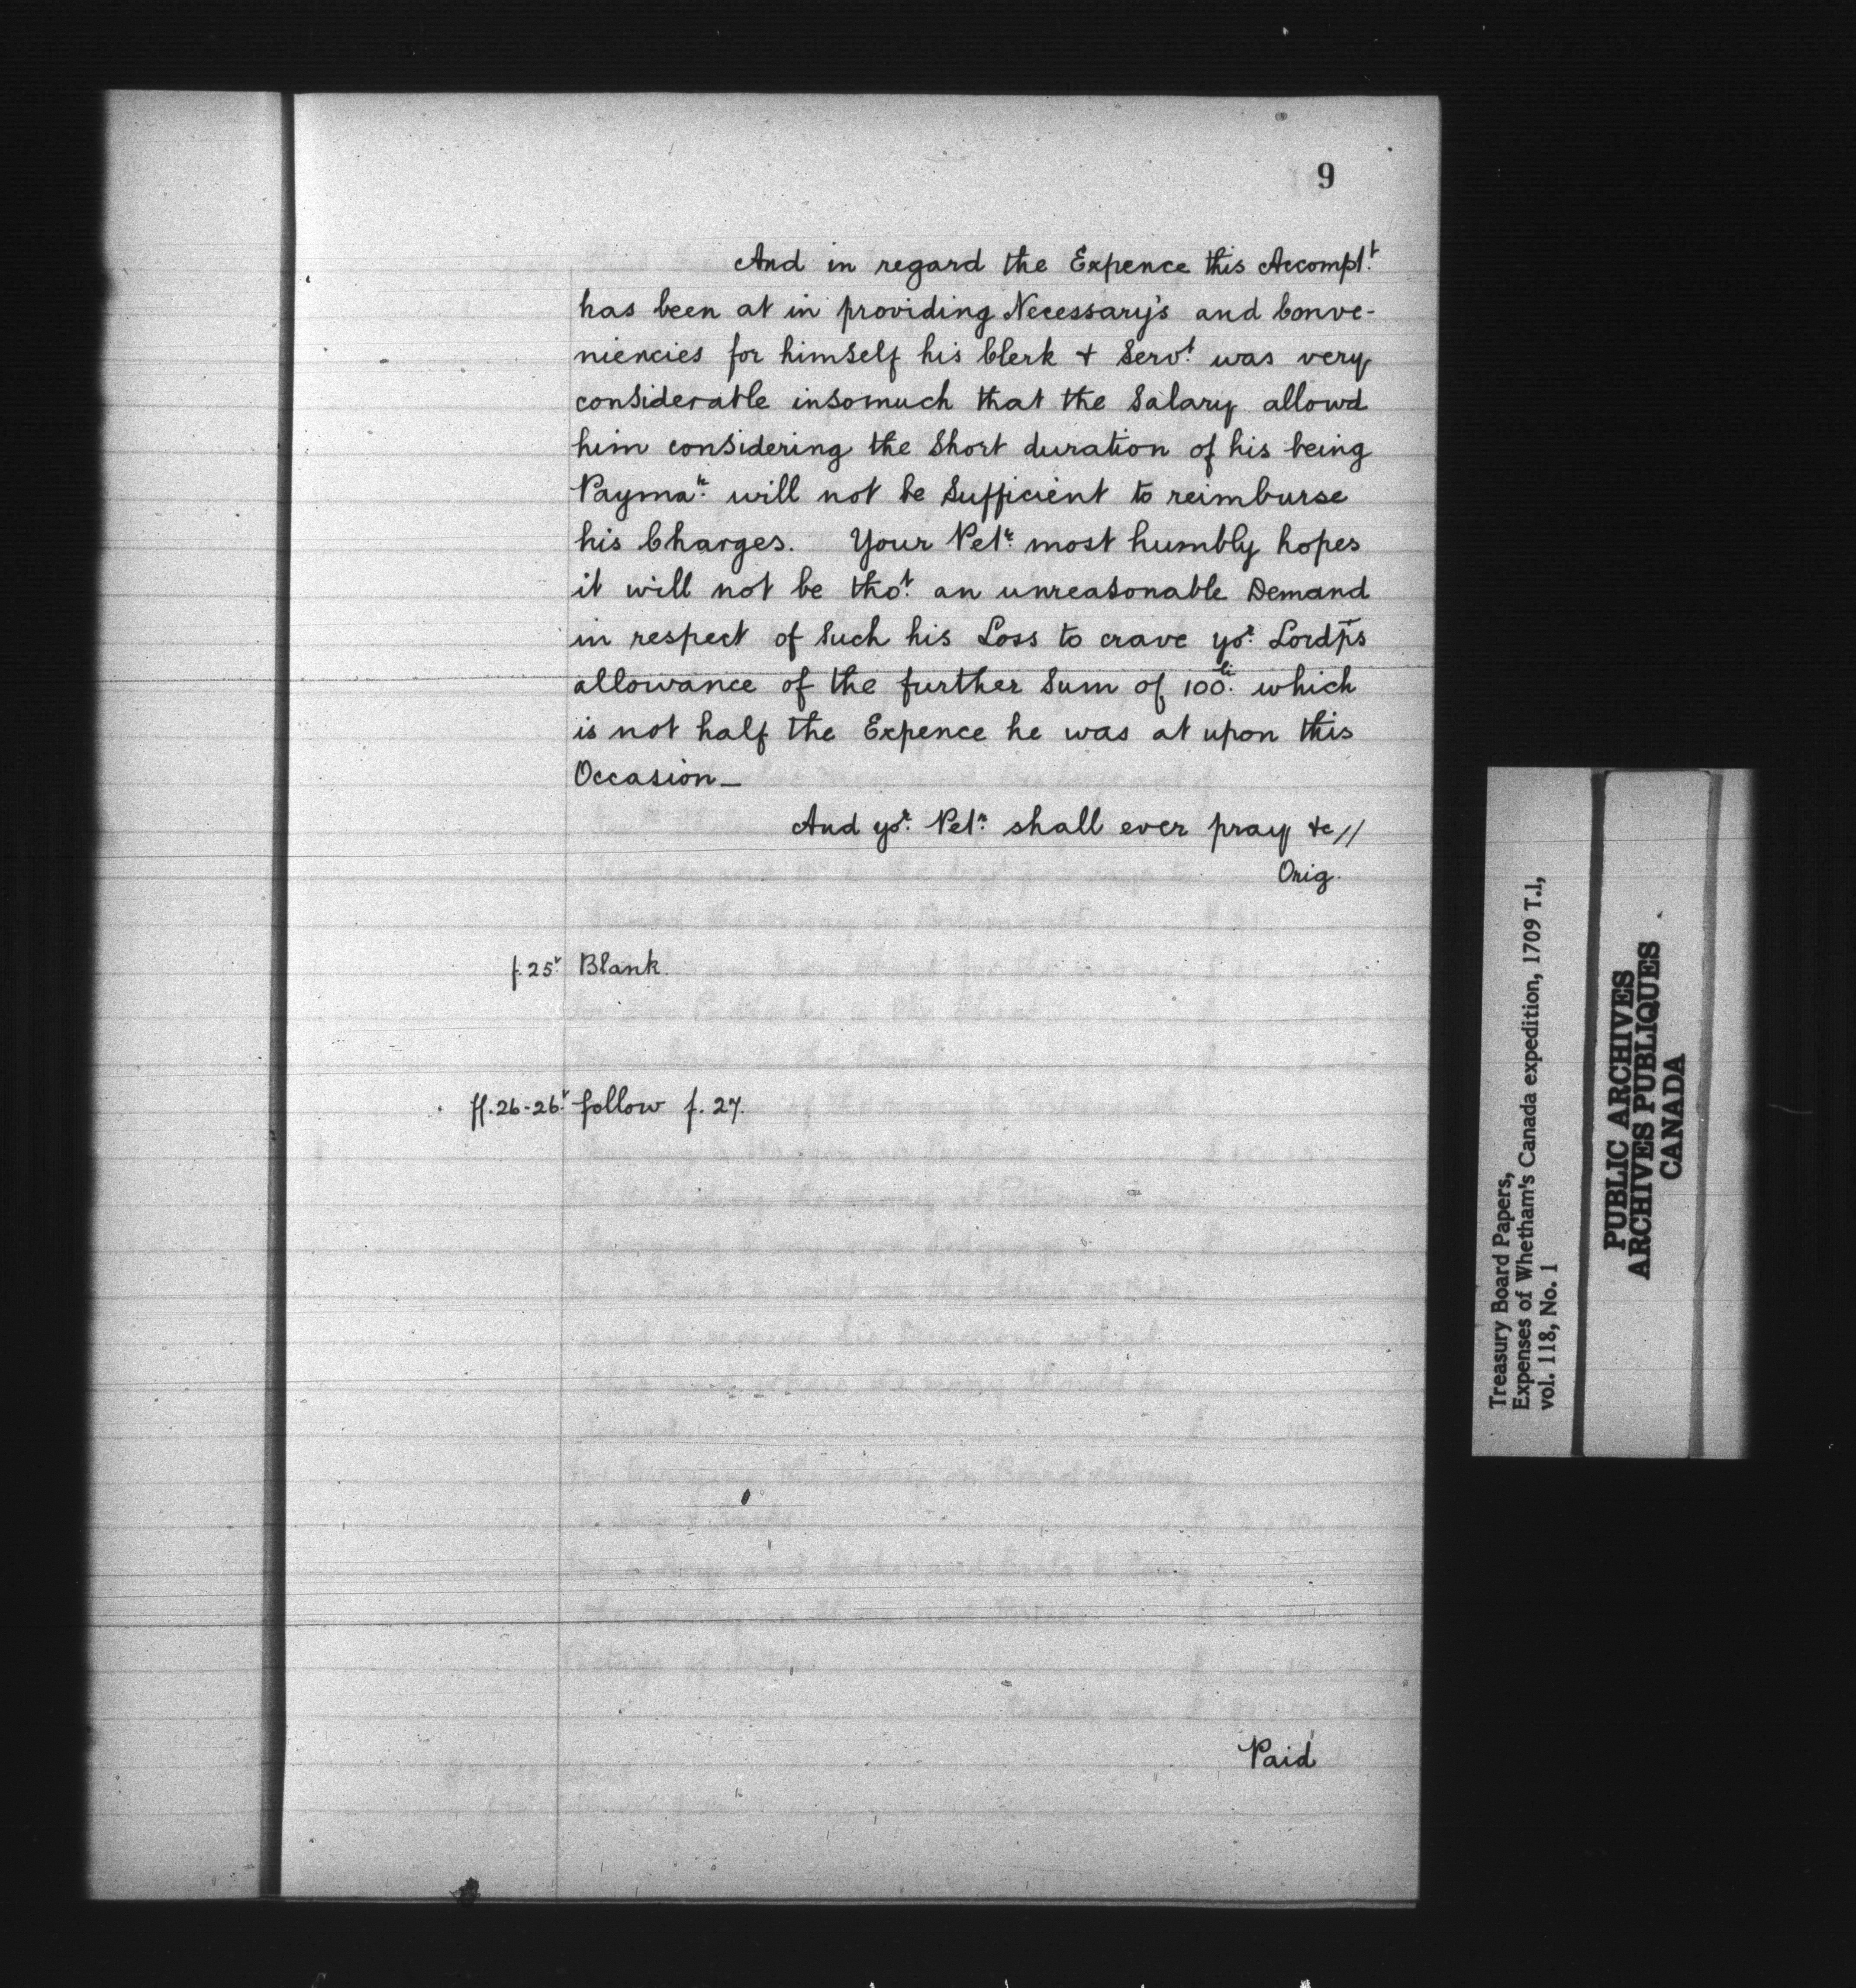 9
And in regard the Expence this Accompt.t
has been at in providing Necessary's and Conve-
niencies for himself his Clerk + Serv.t was very
considerable insomuch that the Salary allowd
him considering the Short duration of his being
Payma.r will not be Sufficient to reimburse
his Charges. Your Pet.r most humbly hopes
it will not be tho.t an unreasonable Demand
in respect of Such his Loss to crave yo.r Lordps
allowance of the further Sum of 100.li which
is not half the Expence he was at upon this
Occasion_
And yo.r Pet.r shall ever pray &c //
Orig.
f.25.v Blank.
ff.26-26.v follow f.27.
Paid
Treasury Board Papers,
Expenses of Whetham's Canada expedition, 1709 T.1,
vol. 118, No. 1
PUBLIC ARCHIVES
ARCHIVES PUBLIQUES
CANADA